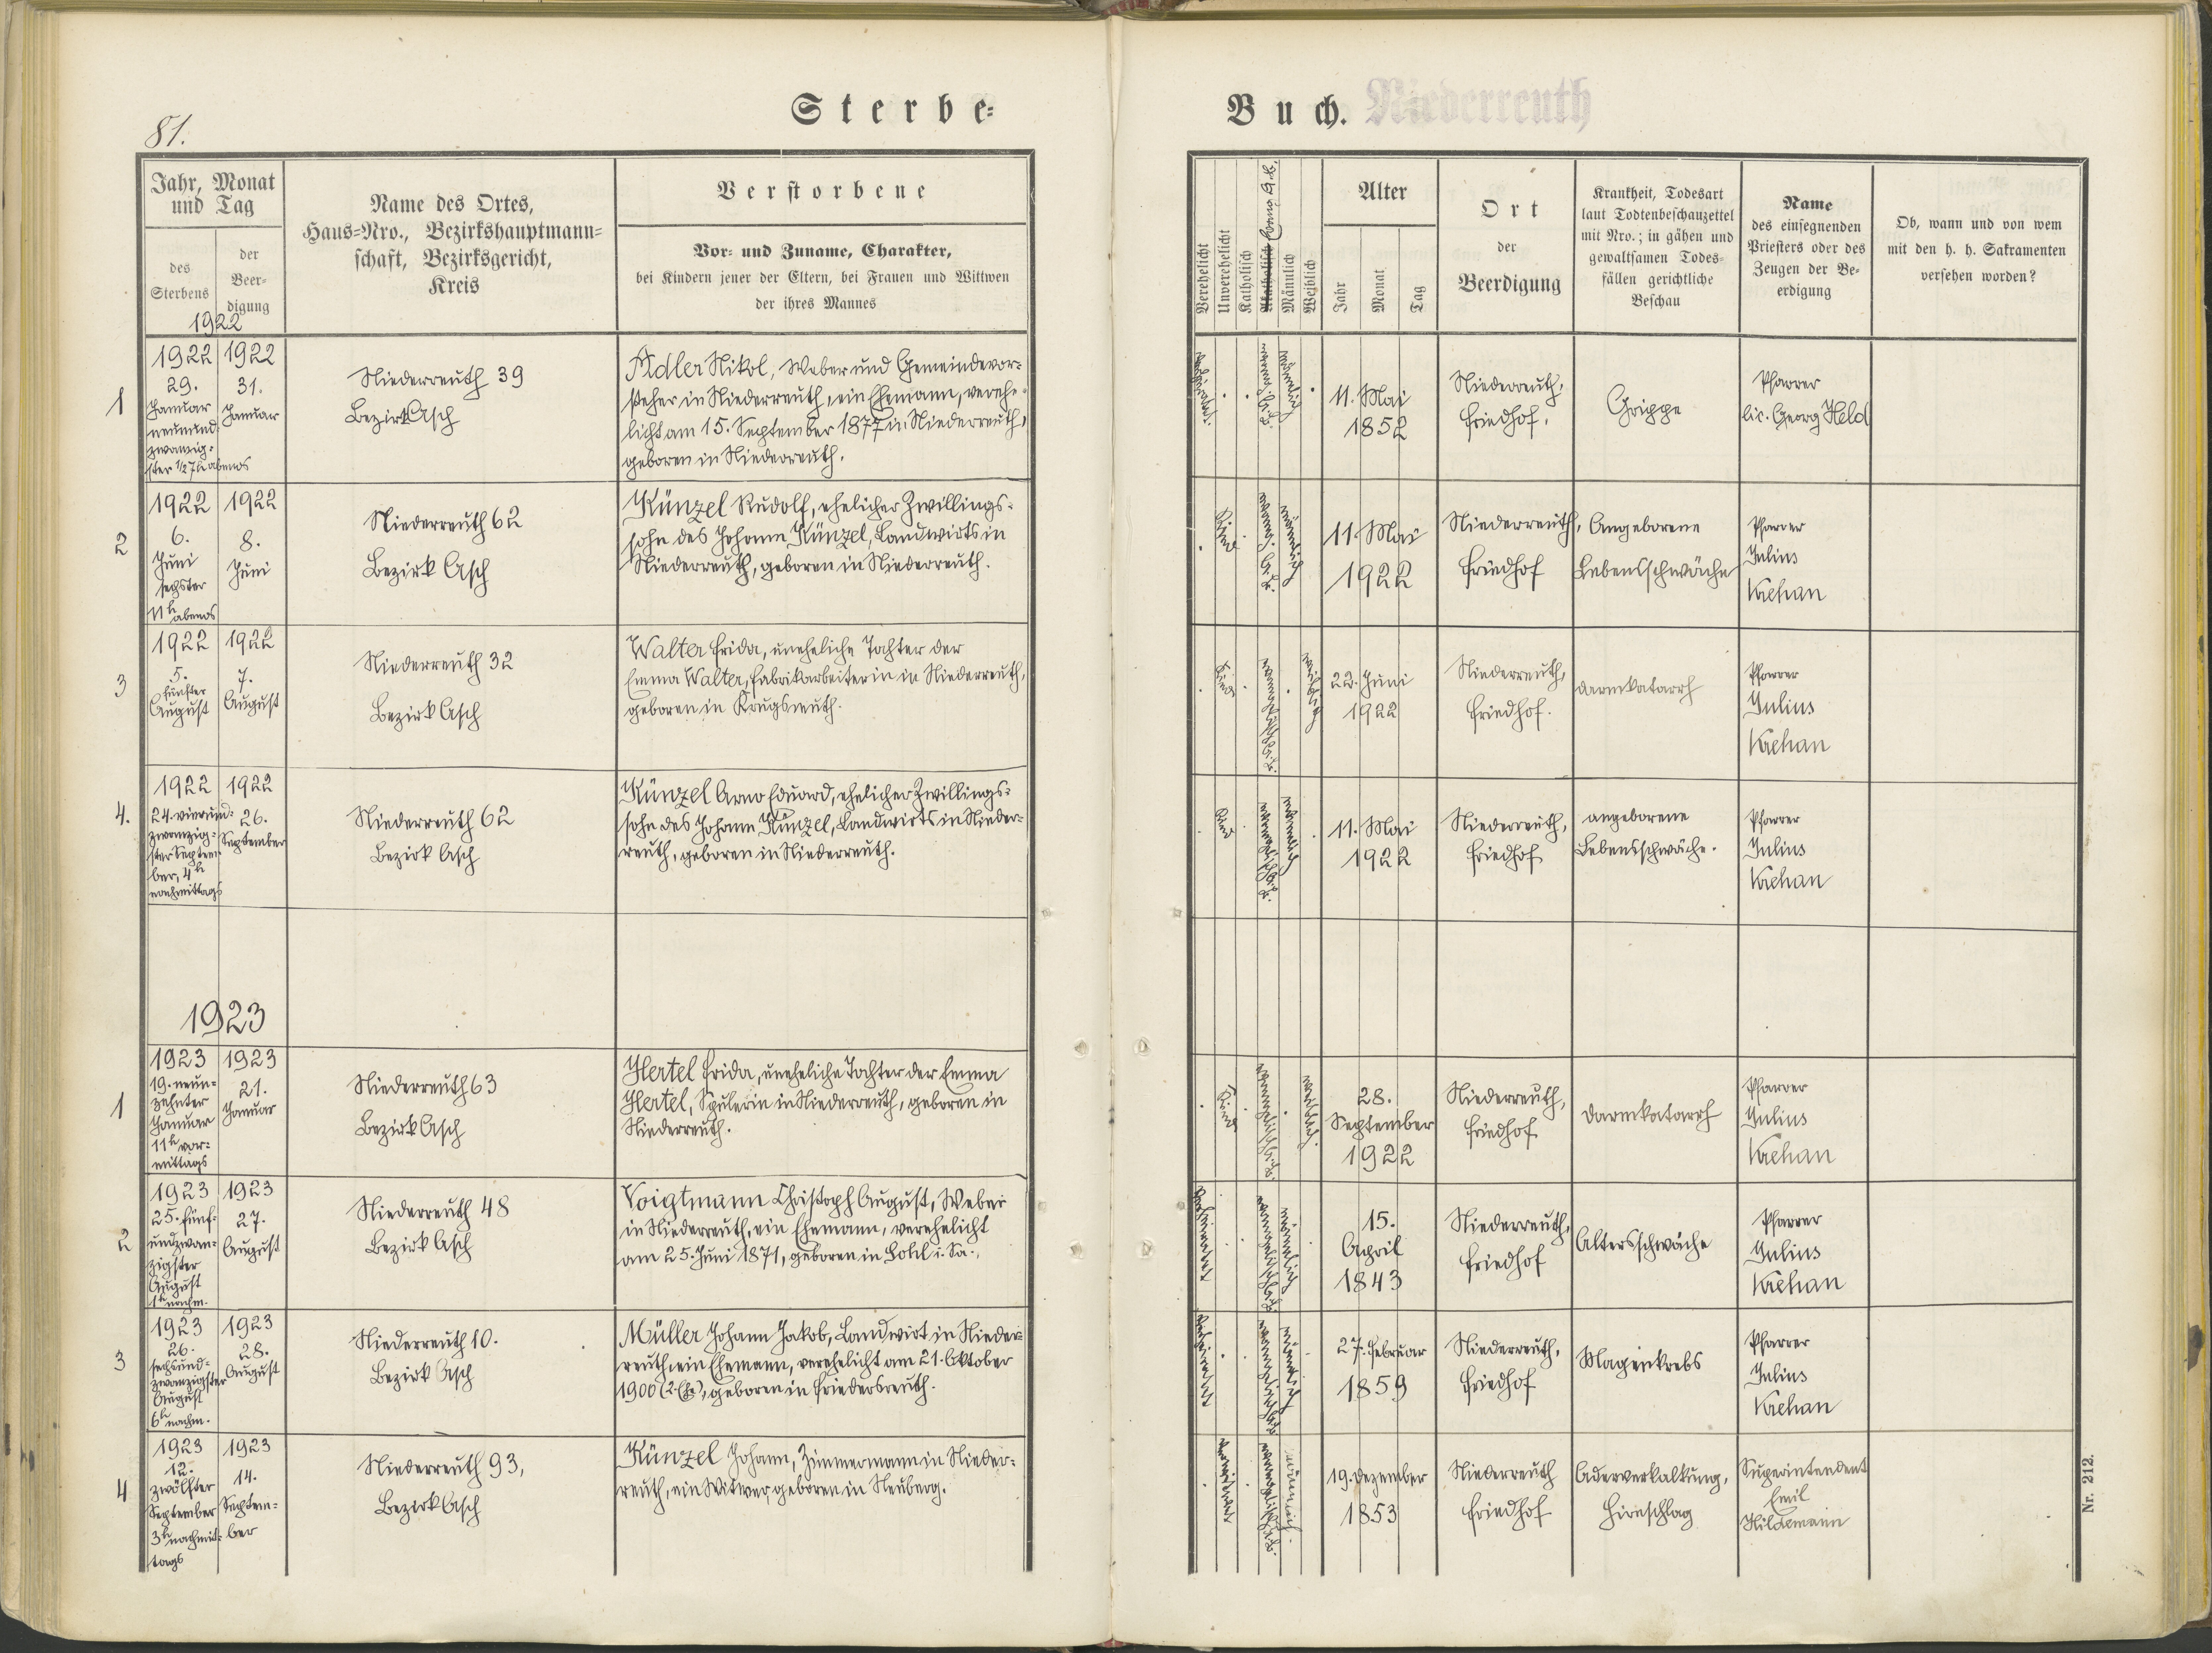 81.
Sterbe-
Buch. Niederreuth
Jahr, Monat
und Tag
des
Sterbens
der
Beer-
digung
1922
Name des Ortes,
Haus-Nro., Bezirkshauptmann-
schaft, Bezirksgericht,
Kreis
Verstorbene
Vor- und Zuname, Charakter,
bei Kindern jener der Eltern, bei Frauen und Wittwen
der ihres Mannes
Verehelicht
Unverehelicht
Katholisch
Akatholisch Evang. A.B.
Männlich
Weiblich
Alter
Jahr
Monat
Tag
Ort
der
Beerdigung
Krankheit, Todesart
laut Todtenbeschauzettel
mit Nro.; in gähen und
gewaltsamen Todes-
fällen gerichtliche
Beschau
Name
des einsegnenden
Priesters oder des
Zeugen der Be-
erdigung
Ob, wann und von wem
mit den h. h. Sakramenten
versehen worden?
1
1922
29.
Januar
neunund-
zwanzig-
ster 1/2 7h abends
1922
31.
Januar
Niederreuth 39
Bezirk Asch
Adler Nikol, Weber und Gemeindevor-
steher in Niederreuth, ein Ehemann, verehe-
licht am 15. September 1877 in Niederreuth,
geboren in Niederreuth.
männlich
11. Mai
1852
Niederreuth,
Friedhof.
Grippe
Pfarrer
lic. Georg Held
2
1922
6.
Juni
sechster
11h abends
1922
8.
Juni
Niederreuth 62
Bezirk Asch
Künzel Rudolf, ehelicher Zwillings-
sohn des Johann Künzel, Landwirts in
Niederreuth, geboren in Niederreuth.
Kind
männlich
11. Mai
1922
Niederreuth,
Friedhof
Angeborene
Lebensschwäche
Pfarrer
Julius
Krehan
3
1922
5.
fünfter
August
1922
7.
August
Niederreuth 32
Bezirk Asch
Walter Frida, uneheliche Tochter der
Emma Walter, Fabrikarbeiterin in Niederreuth,
geboren in Krugsreuth.
Kind
weiblich
22. Juni
1922
Niederreuth,
Friedhof.
Darmkatarrh
Pfarrer
Julius
Krehan
4.
1922
24. vierund-
zwanzig-
ster Septem-
ber, 4h
nachmittags
1922
26.
September
Niederreuth 62
Bezirk Asch
Künzel Arno Eduard, ehelicher Zwillings-
sohn des Johann Künzel, Landwirts in Nieder-
reuth, geboren in Niederreuth.
Kind
männlich
11. Mai
1922
Niederreuth,
Friedhof
angeborene
Lebensschwäche.
Pfarrer
Julius
Krehan
1923
1
1923
19. neun-
zehnter
Januar
11h vor-
mittags
1923
21.
Januar
Niederreuth 63
Bezirk Asch
Hertel Frida, uneheliche Tochter der Emma
Hertel, Spulerin in Niederreuth, geboren in
Niederreuth.
Kind
weiblich
28.
September
1922
Niederreuth,
Friedhof
Darmkatarrh
Pfarrer
Julius
Krehan
2
1923
25. fünf-
undzwan-
zigster
August
1h nachm.
1923
27.
August
Niederreuth 48
Bezirk Asch
Voigtmann Christoph August, Weber
in Niederreuth, ein Ehemann, verehelicht
am 25. Juni 1871, geboren in i. Sa.,
männlich
15.
April
1843
Niederreuth,
Friedhof
Altersschwäche
Pfarrer
Julius
Krehan
3
1923
26.
sechsund-
zwanzigster
August
6h nachm.
1923
28.
August
Niederreuth 10.
Bezirk Asch
Müller Johann Jakob, Landwirt in Nieder-
reuth, ein Ehemann, verehelicht am 21. Oktober
1900 (2. Ehe), geboren in Friedersreuth.
männlich
27. Februar
1859
Niederreuth,
Friedhof
Magenkrebs
Pfarrer
Julius
Krehan
4
1923
12.
zwölfter
September
3h nachmit-
tags
1923
14.
Septem-
ber
Niederreuth 93,
Bezirk Asch
Künzel Johann, Zimmermann in Nieder-
reuth, ein Witwer, geboren in Neuberg.
männlich
19. Dezember
1853
Niederreuth
Friedhof
Aderverkalkung,
Hirnschlag
Superintendent
Emil
Hildemann
Nr. 212.